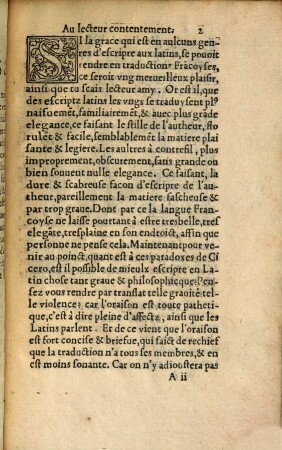 Au lecteur contentement. 2
SI la grace qui est en aulcuns gen-
res d'escripre aux latins, se pouoit
rendre en traduction Frãcoyses,
ce seroit vng merueilleux plaisir,
ainsi que tu scais lecteur amy. Or est il, que
des escriptz latins les vngs se treuuent plꝰ
naisuemēt, familiairemēt, & auec plus grãde
elegance, ce faisant le stille de l'autheur, flo
rulēt & facile, semblablemēt la matiere plai
sante & legiere. Les aultres à contrefil, plus
improprement, obscurement, sans grande ou
bien souuent nulle elegance. Ce faisant, la
dure & scabreuse facon d'escripre de l'au-
theur, pareillement la matiere fascheuse &
par trop graue. Dont par ce la langue Fran-
coyse ne laisse pourtant à estre tresbelle, tres
elegãte, tresplaine en son endroict, affin que
personne ne pense cela. Maintenant pour ve-
nir au poinct, quant est à ces paradoxes de Ci
cero, est il possible de mieulx escripre en La-
tin chose tant graue & philosophicque? Pen-
sez vous rendre par translat telle grauité: tel-
le violence? car l'oraison est toute pathetic-
que, c'est à dire pleine d'affectz, ainsi que les
Latins parlent. Et de ce vient que l'oraison
est fort concise & briefue, qui faict de rechief
que la traduction n'a tous ses membres, & en
est moins sonante. Car on n'y adioustera pas
A ii